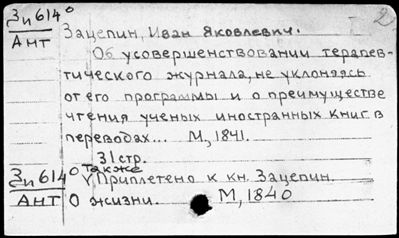 Зи614° Зацепин, Иван Яковлевич.
Ант
Об усовершенствовании терапев-
тического журнала, не уклоняясь
от его программы и о преимуществе
чтения ученых иностранных книг в
переводах... М., 1841.
31 стр.
Также
Зи614° Приплетено к кн. Зацепин.
Ант О жизни. М, 1840
2